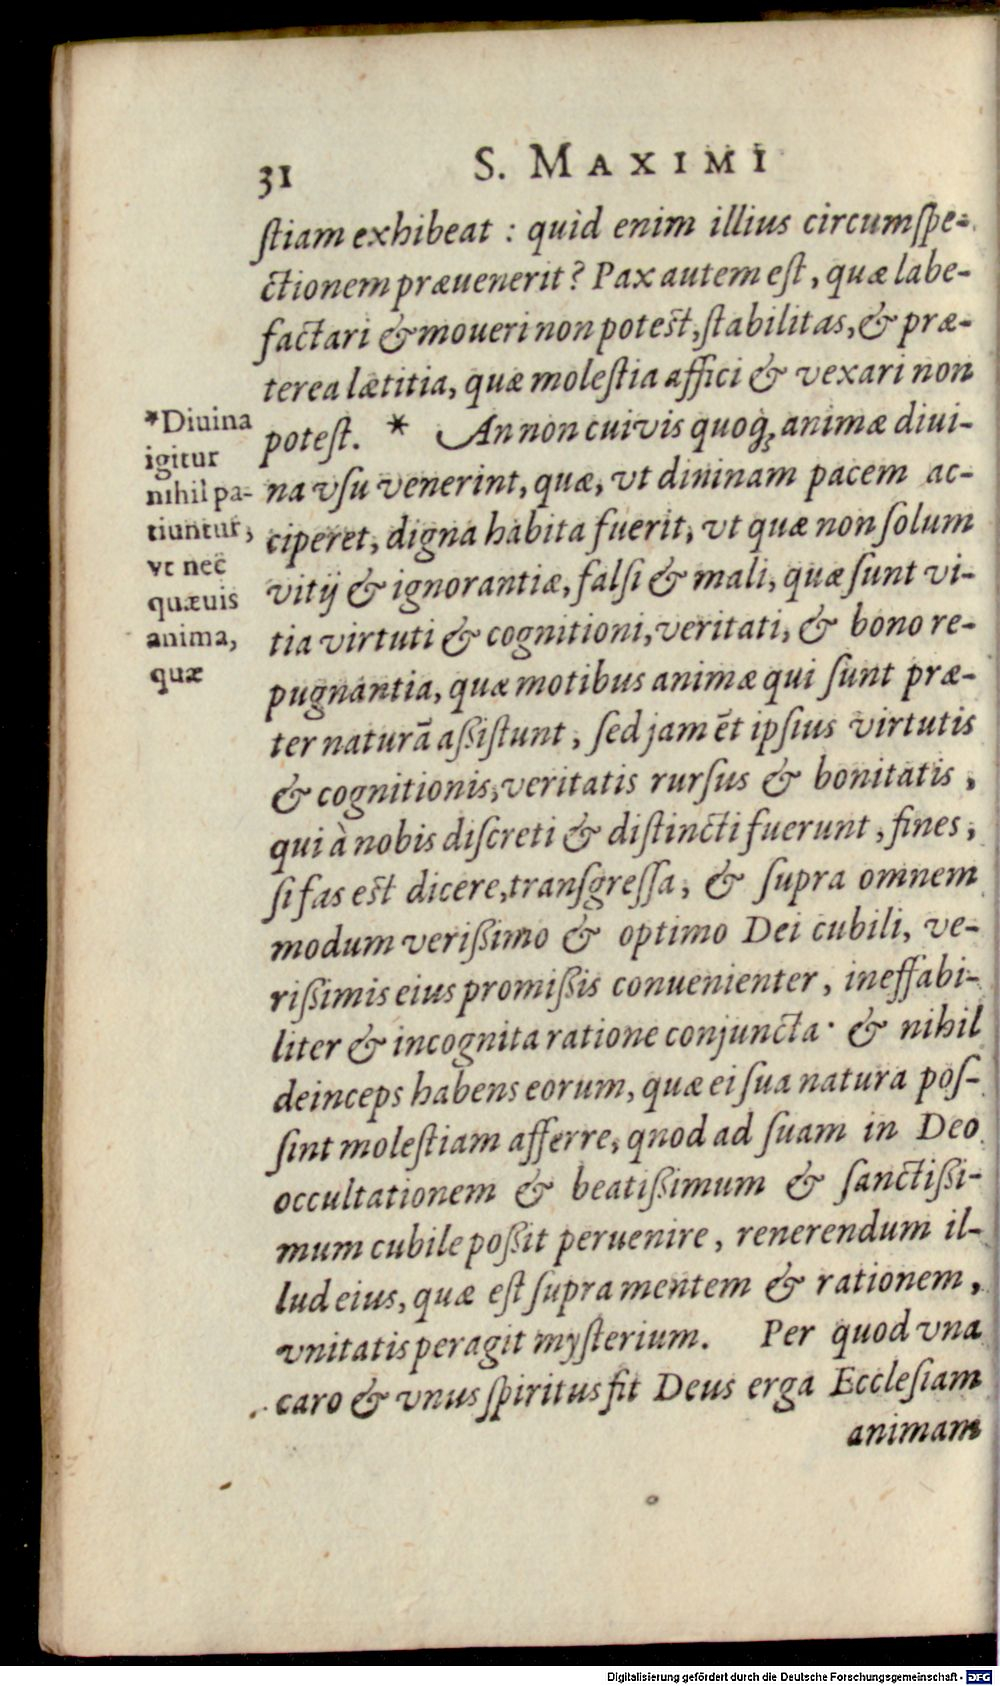 31 S. MAXIMI
ſtiam exhibeat : quid enim illius circumſpe-
ctionem præuenerit? Pax autem eſt, quæ labe-
factari & moueri non potest, ſtabilitas, & præ-
terea lætitia, quæ moleſtia affici & vexari non
poteſt. * An non cuivis quoq; animæ diui-
na vſu venerint, quæ, vt dininam pacem ac-
ciperet, digna habita fuerit, vt quæ non ſolum
vitij & ignorantiæ, falſi & mali, quæ ſunt vi-
tia virtuti & cognitioni, veritati, & bono re-
pugnantia, quæ motibus animæ qui ſunt præ-
ter naturā aßiſtunt, ſed jam ēt ipſius virtutis
& cognitionis, veritatis rurſus & bonitatis,
qui à nobis diſcreti & diſtincti fuerunt, fines,
ſi fas est dicere, tranſgreſſa, & ſupra omnem
modum verißimo & optimo Dei cubili, ve-
rißimis eius promißis conuenienter, ineffabi-
liter & incognita ratione conjuncta· & nihil
deinceps habens eorum, quæ ei ſua natura poſ-
ſint moleſtiam afferre, qnod ad ſuam in Deo
occultationem & beatißimum & ſanctißi-
mum cubile poßit peruenire, renerendum il-
lud eius, quæ eſt ſupra mentem & rationem,
vnitatis peragit myſterium. Per quod vna
caro & vnus ſpiritus fit Deus erga Eccleſiam
animam
*Diuina
igitur
nihil pa-
tiuntur,
vt nec
quævis
anima,
quæ
Digitalisierung gefördert durch die Deutsche Forschungsgemeinschaft - DFG